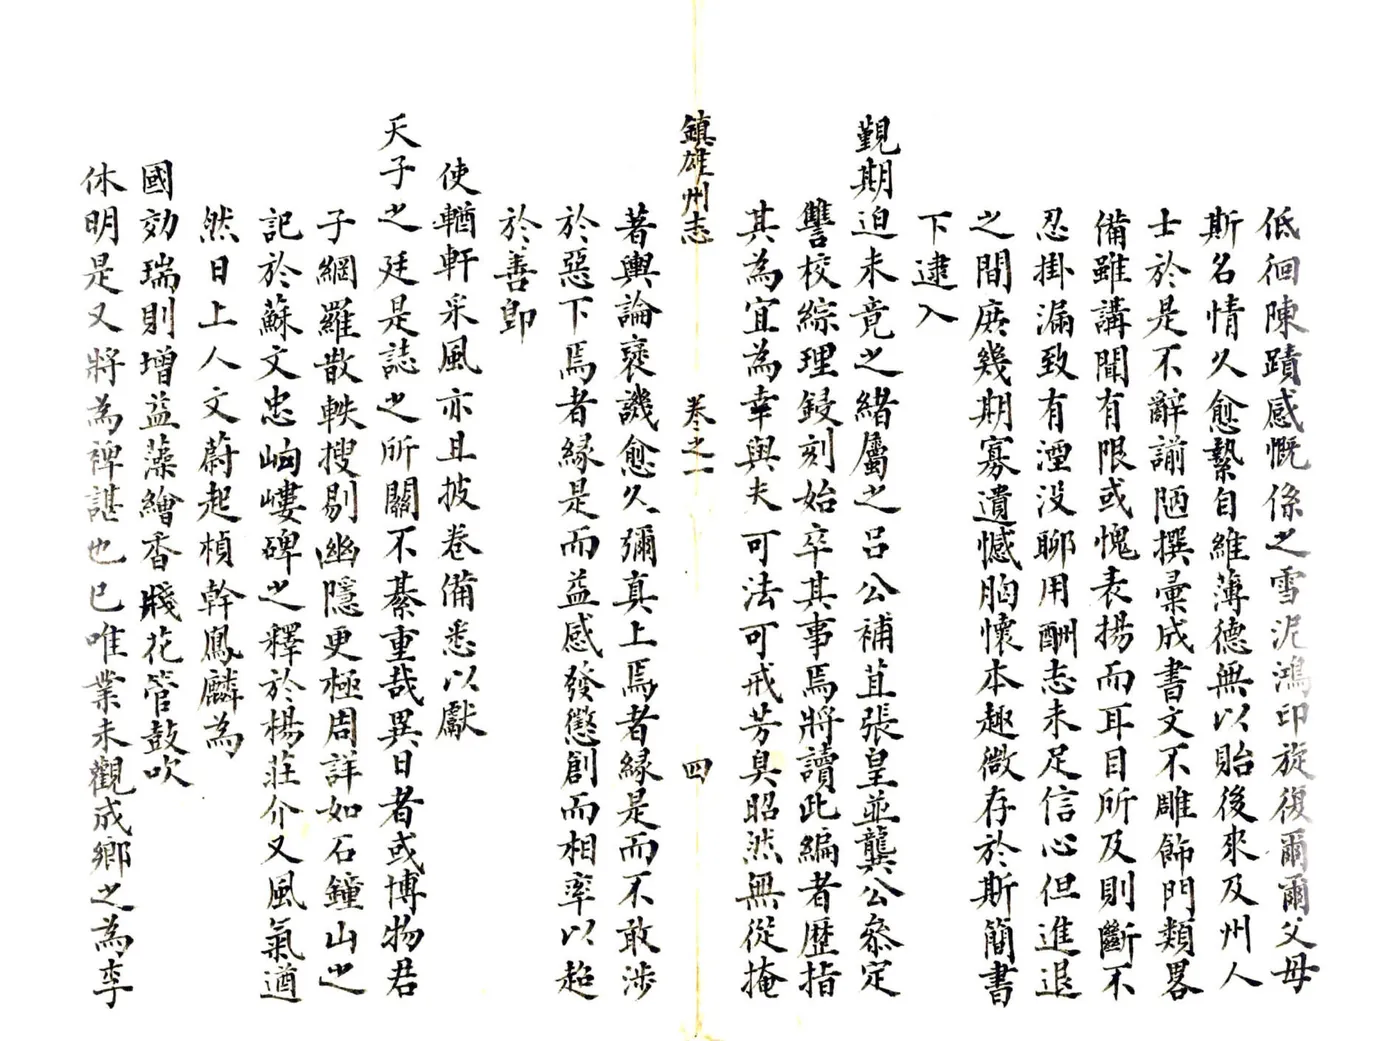 低徊陳蹟感慨係之雪泥鴻印旋復爾爾父母
斯名情久愈縶自維薄德無以貽後來及州人
士於是不辭謭陋撰彙成書文不雕飾門類畧
備雖講聞有限或愧表揚而耳目所及則斷不
忍掛漏致有湮没聊用酬志未足信心但進退
之間庶幾期寡遺憾胸懷本趣微存於斯簡書
下逮入
覲期迫未竟之緒屬之呂公補苴張皇並龔公叅定
讐校綜理鋟刻始卒其事焉將讀此編者歷指
其為宜為幸與夫可法可戒芳臭昭然無從掩
鎮雄州志 卷之一 四
著輿論褒譏愈久彌真上焉者緣是而不敢涉
於惡下焉者緣是而益感發懲創而相率以趋
於善卽
使輶軒采風亦且披卷備悉以獻
天子之廷是誌之所關不綦重哉異日者或博物君
子網羅散軼搜剔幽隱更極周詳如石鐘山之
記於蘇文忠岣嶁碑之釋於楊莊介又風氣遒
然日上人文蔚起楨幹鳳麟為
國効瑞則增益藻繪香牋花管鼓吹
休明是又將為裨諶也已唯業未觀成鄉之為李